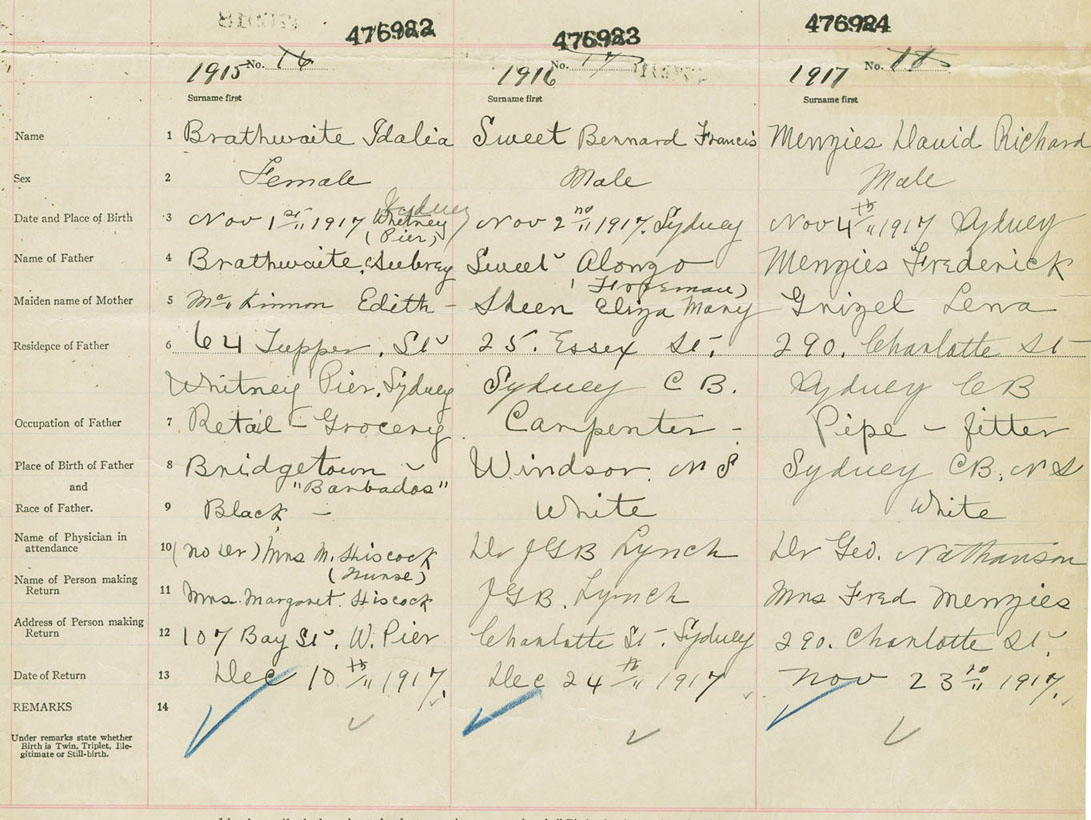 476922 476923 476924
1915 No. 16 1916 No. 17 1917 No. 18
Surname first Surname first Surname first
Name 1 Brathwaite Idalia Sweet Bernard Francis Menzies David Richard
Sex 2 Female Male Male
Sydney
Date and Place of Birth 3 Nov 1st 1917 Whitney Nov 2nd 1917. Sydney Nov 4th 1917 Sydney
(Pier)
Name of Father 4 Brathwaite, Aubrey Sweet Alonzo Menzies Frederick
(Foreman)
Maiden name of Mother 5 McKinnon Edith - Skeen Eliza Mary Grizel Lena
Residence of Father 6 64 Tupper. St 25. Essex St. 290. Charlotte St
Whitney Pier. Sydney Sydney C B. Sydney C B
Occupation of Father 7 Retail - Grocery Carpenter - Pipe - fitter
Place of Birth of Father 8 Bridgetown Windsor N S Sydney CB. N S
and "Barbados"
Race of Father. 9 Black - White White
Name of Physician in
attendance 10 (no Dr) Mrs M. Hiscock Dr JGB Lynch Dr Geo. Nathanson
(Nurse)
Name of Person making
Return 11 Mrs. Margaret. Hiscock JGB. Lynch Mrs Fred Menzies
Address of Person making
Return 12 107 Bay St. W. Pier Charlotte St - Sydney 290. Charlotte St.
Date of Return 13 Dec 10th 1917. Dec 24th 1917 Nov 23rd 1917.
REMARKS 14
Under remarks state whether
Birth is Twin, Triplet, Ille-
gitimate or Still-birth.